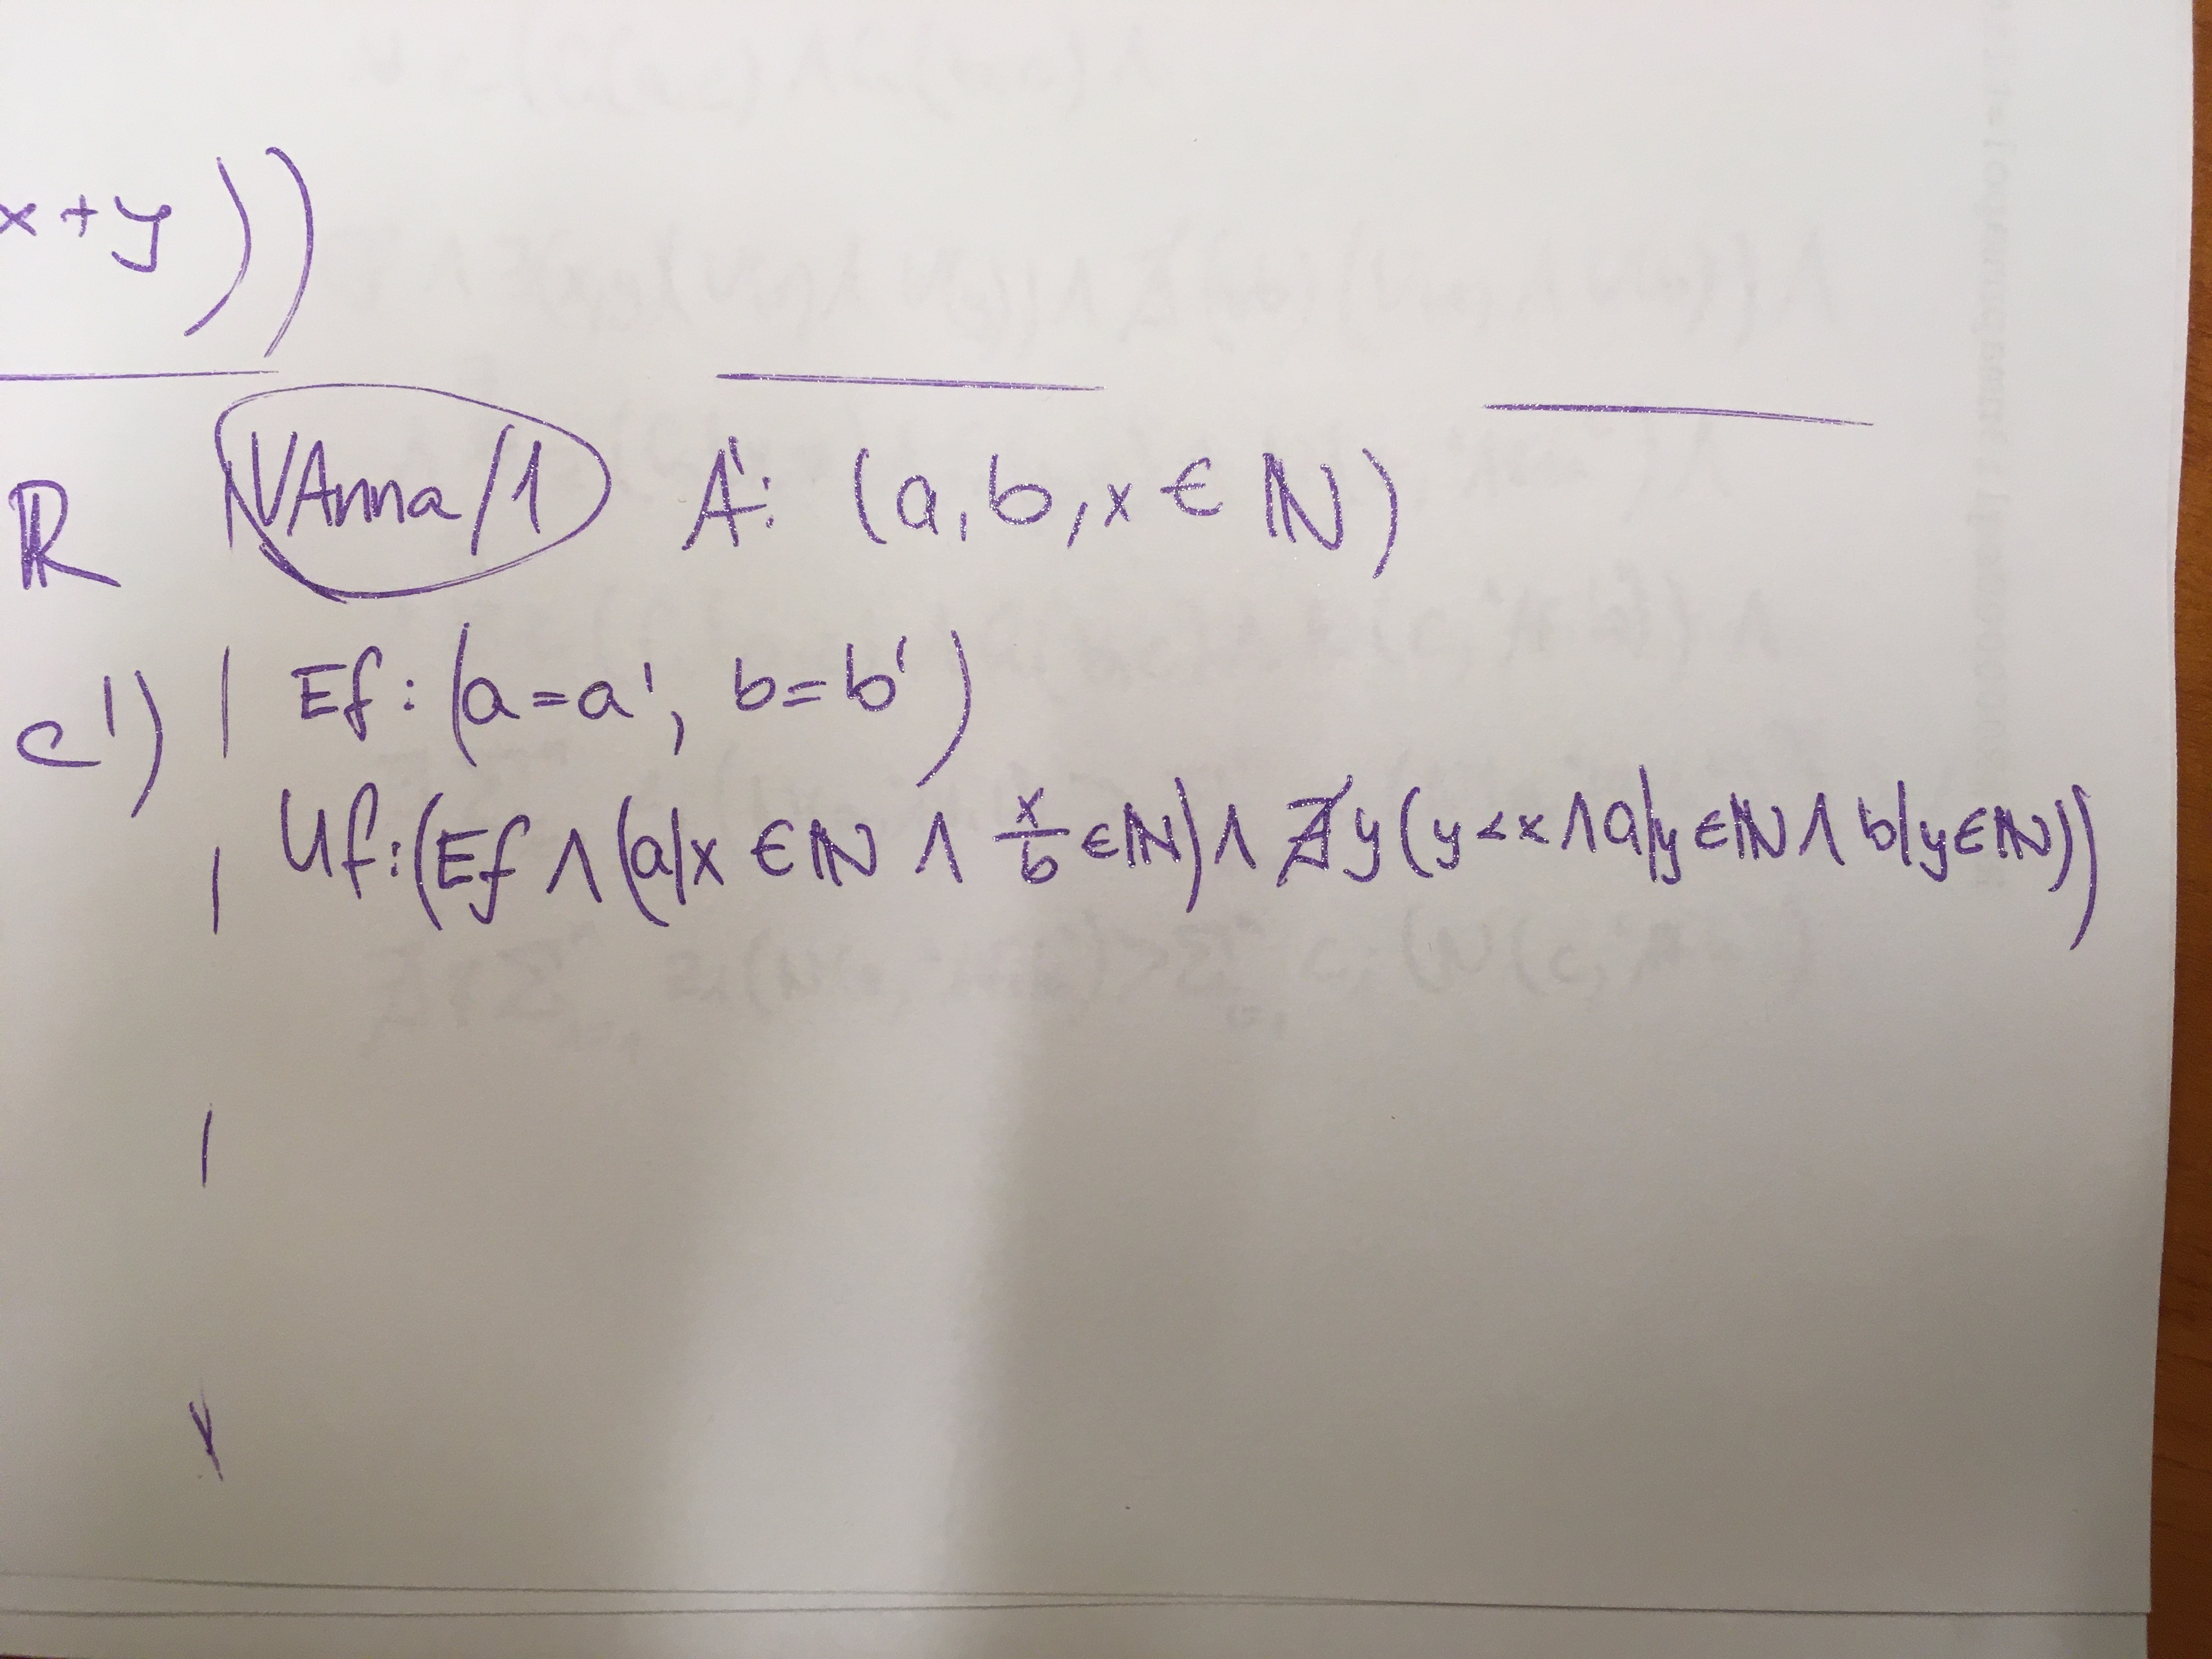 x+y))
ℝ
NAnna/1 A: (a,b,x∈ℕ)
c')
Ef: (a=a', b=b')
Uf:(Ef ∧ (a|x ∈ℕ ∧ x/b ∈ℕ) ∧ ∄y (y<x ∧ a|y∈ℕ ∧ b|y∈ℕ))